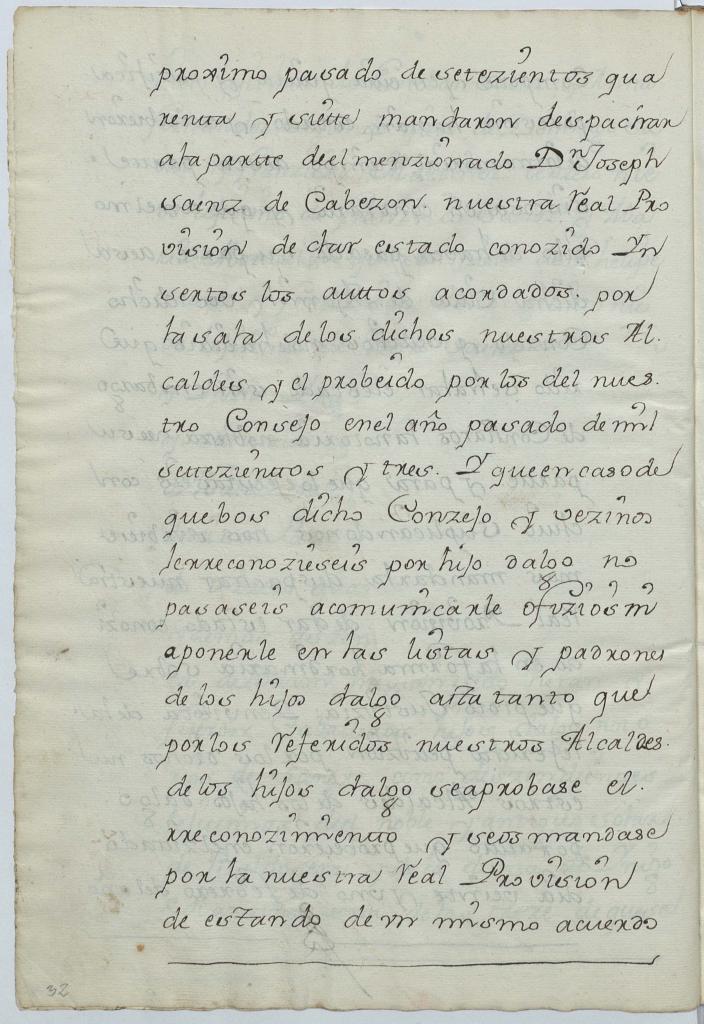 proximo pasado de setezientos qua
renta y siette mandaron despachar
ala partte deel menzionado Dn Joseph
saenz de Cabezon. nuestra Real Pro
vision de dar estado conozido Yn
sertos los auttos acordados. por
la sala de los dichos nuestros Al.
caldes y el probeido por los del nues.
tro Consejo enel año pasado de mil
settezienttos y tres. Y que en caso de
que bos dicho Conzejo y vezinos
lerreconozieseis por hijo dalgo no
pasaseis acomunicarle ofizios ni
aponerle en las listas y padrones
de los hijos dalgo asta tanto que
por los Referidos nuestros Alcaldes.
de los hijos dalgo seaprobase el.
rreconozimientto y seos mandase
por la nuestra Real Provision
de estando de un mismo acuerdo
32